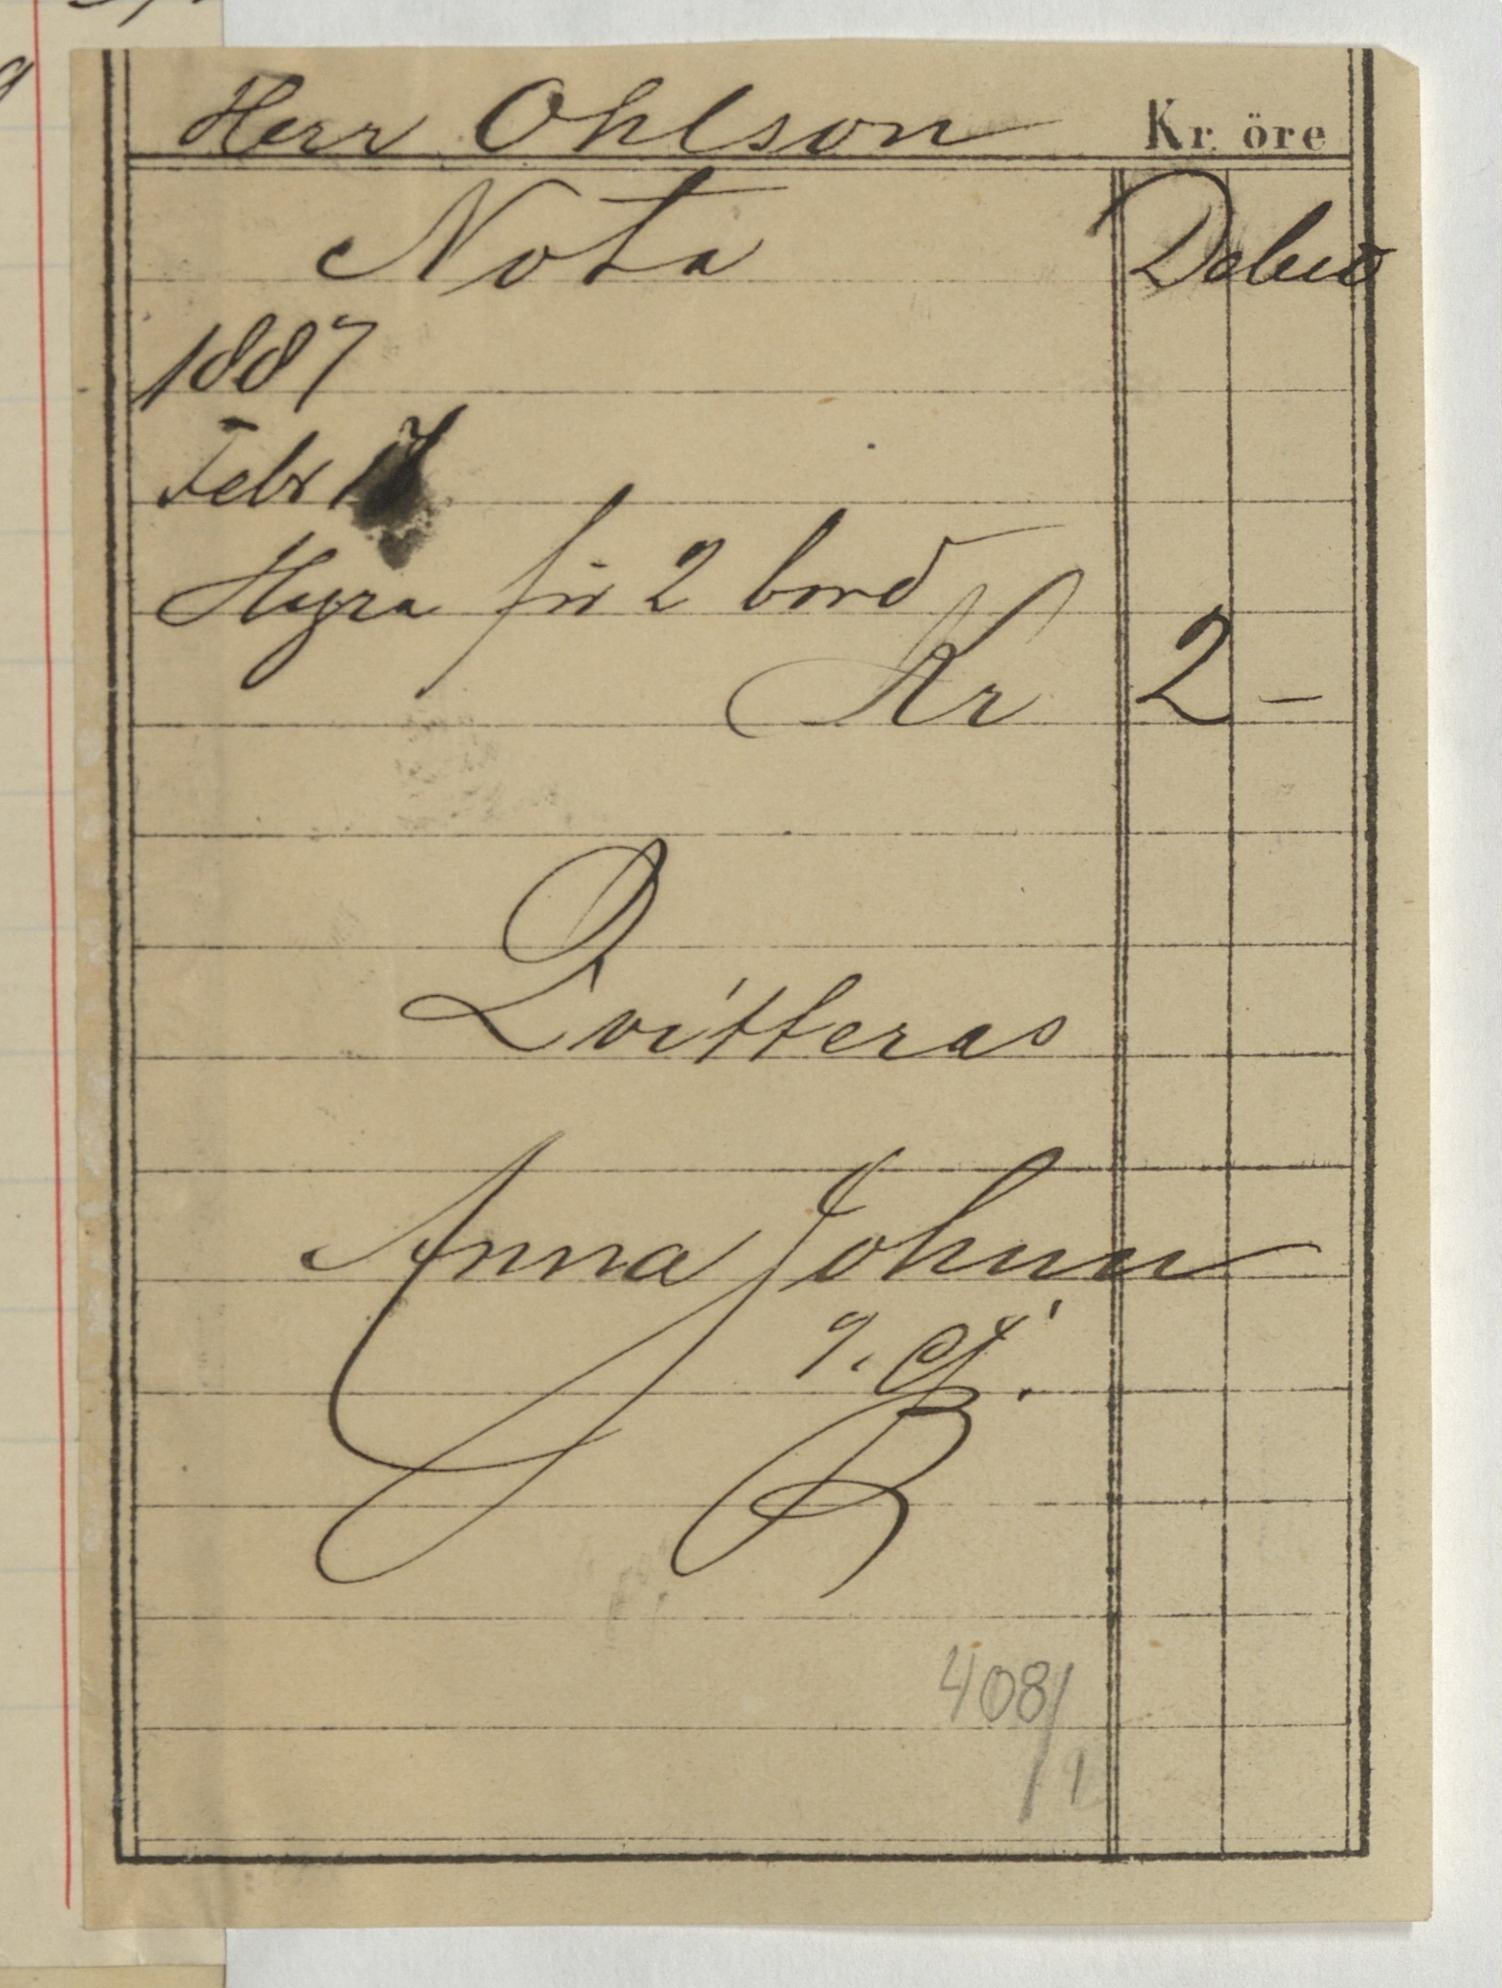 Herr Ohlson Kr. öre
Nota Debit
1887
Febr 17
Hyra för 2 bord
Kr 2 –
Qvitteras
Anna Johnn
408/1